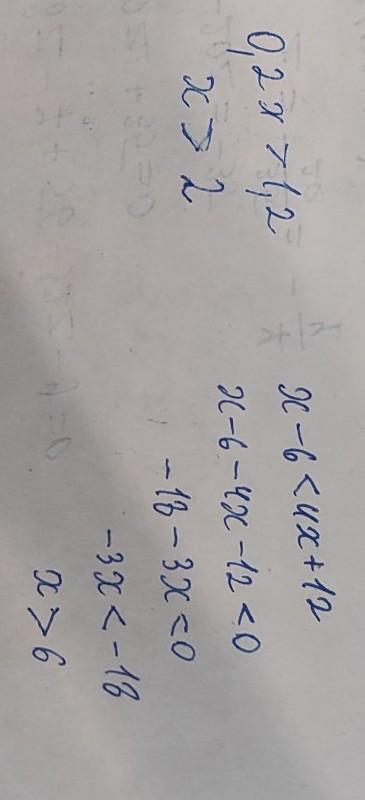 0,2x > 1,2
x > 2
x - 6 < 4x + 12
x - 6 - 4x - 12 < 0
-18 - 3x < 0
-3x < -18
x > 6